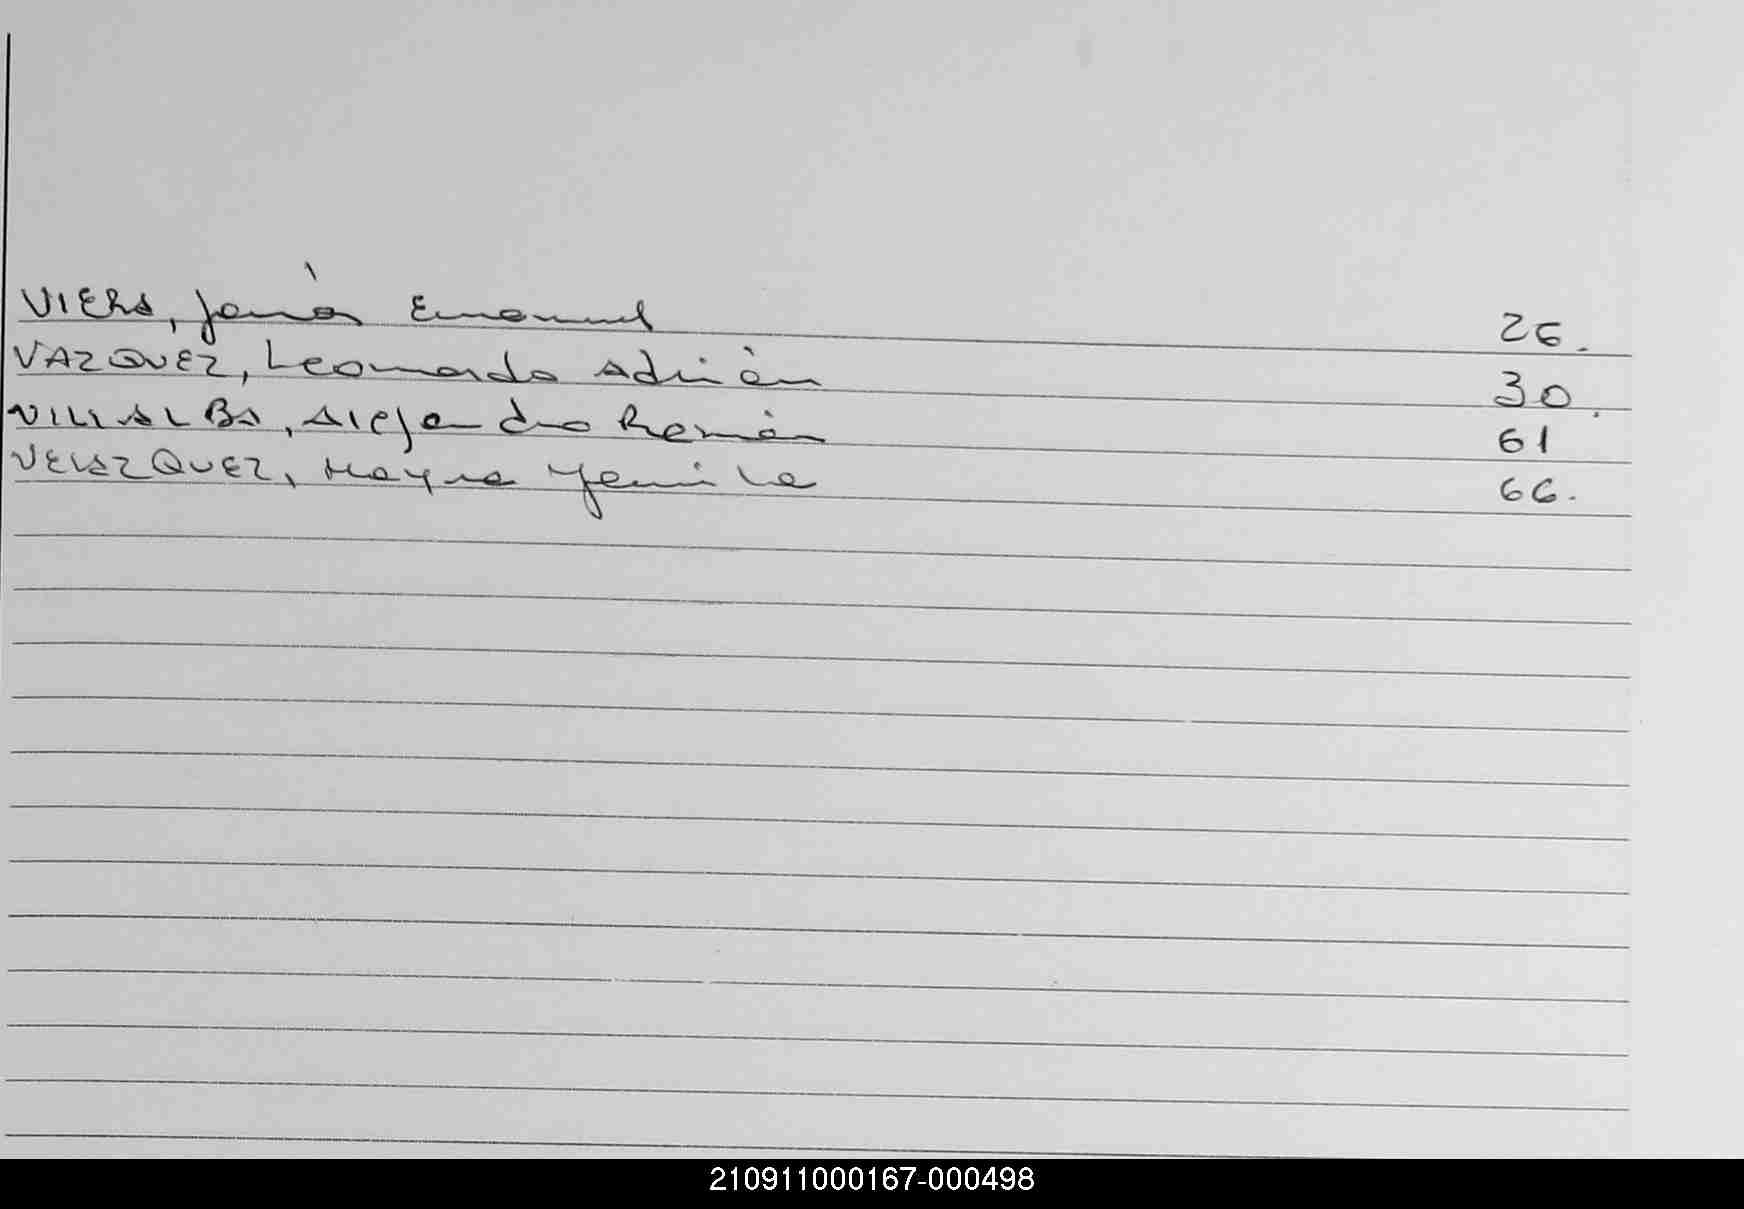 VIERA, Jonás Emanuel 26.
VAZQUEZ, Leonardo Adrián 30.
VILLALBA, Alejandro Román 61
VELAZQUEZ, Mayra Yamila 66.
210911000167-000498